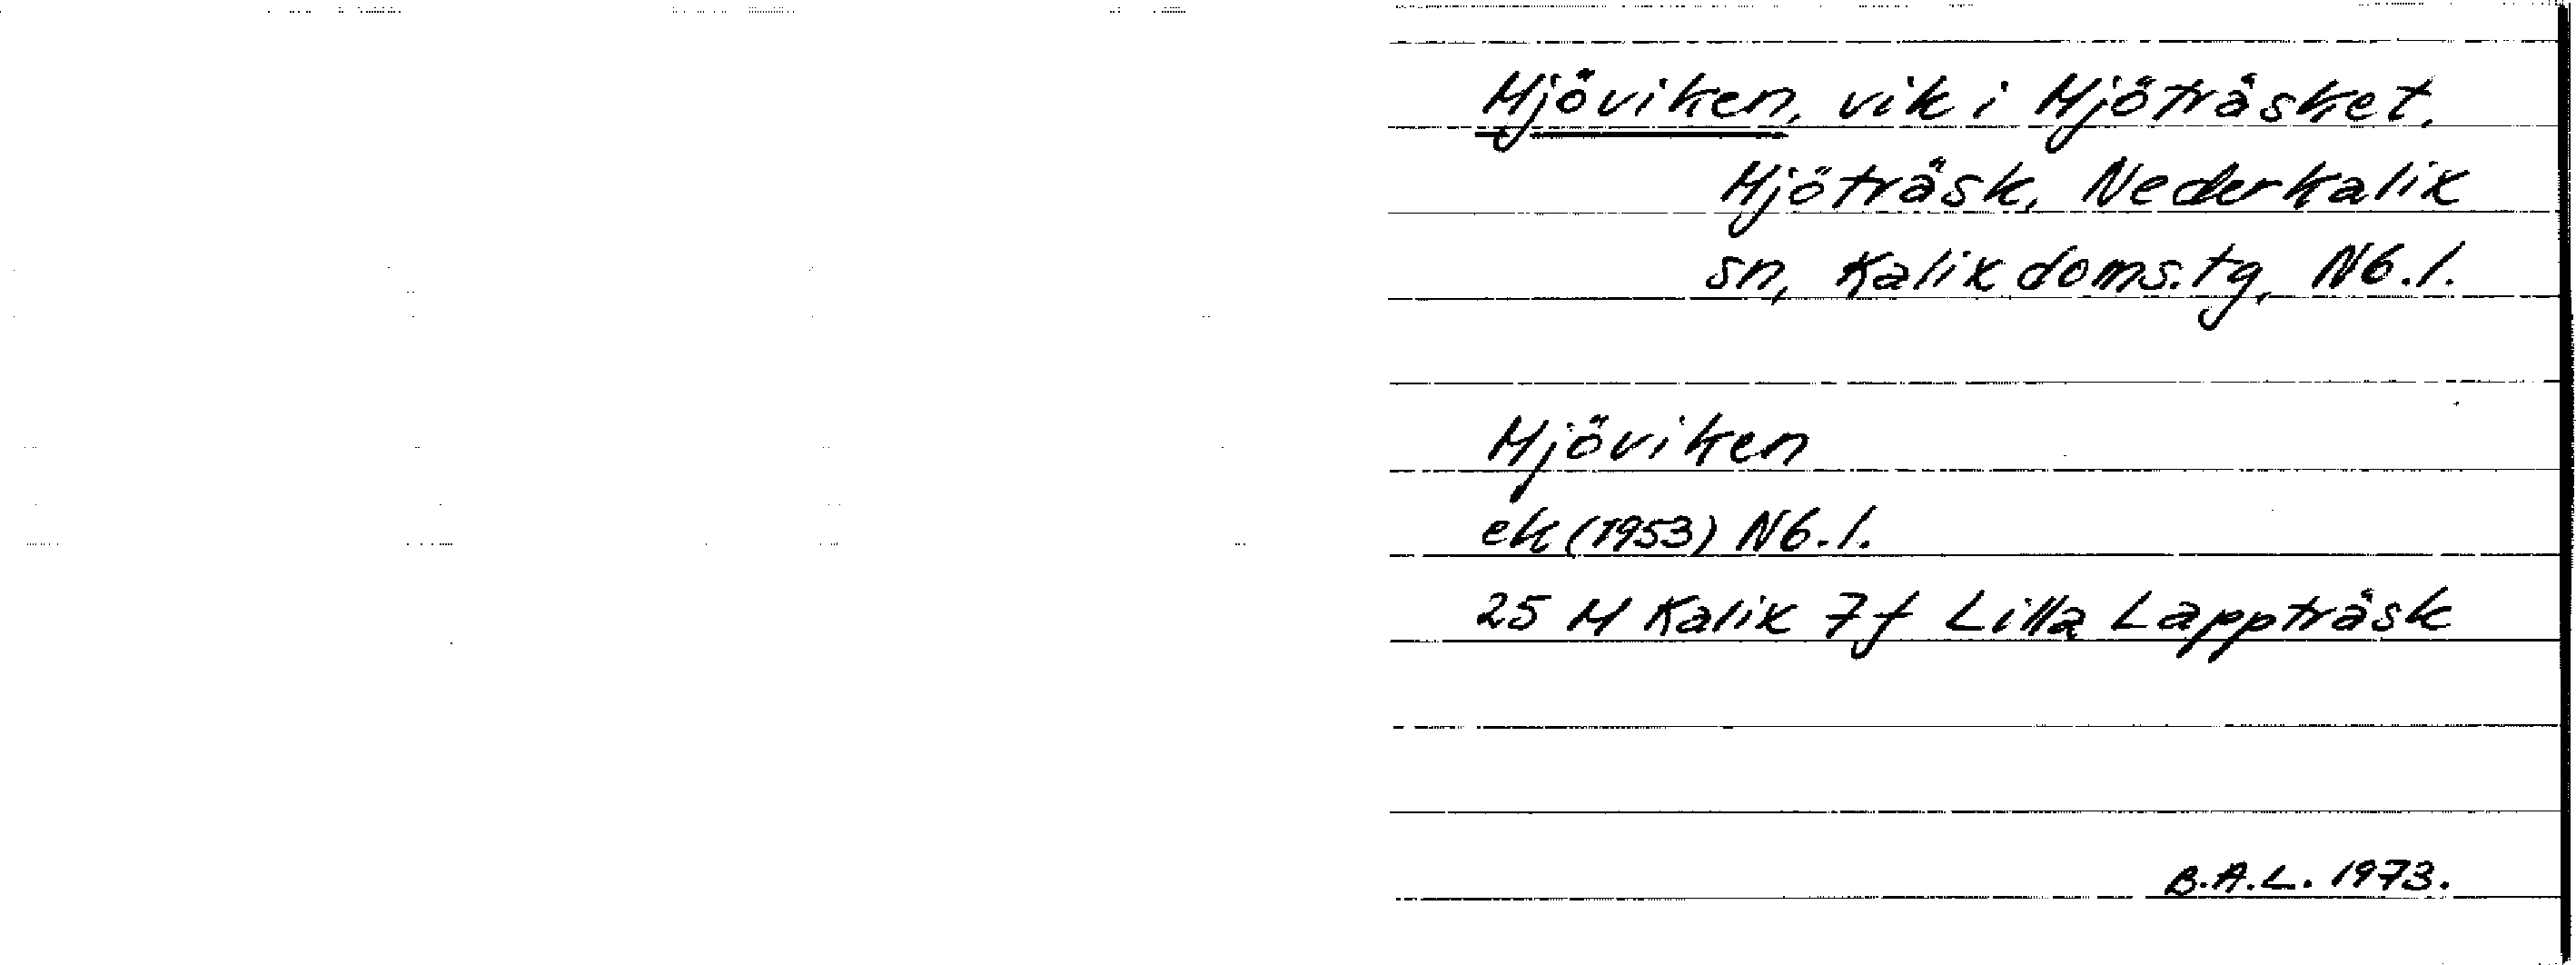 Mjöviken, vik i Mjöträsket,
Mjöträsk, Nederkalix
sn, Kalix doms.tg, Nb.l.
Mjöviken
ek (1953) Nb.l.
25 M Kalix 7f Lilla Lappträsk
B.A.L. 1973.